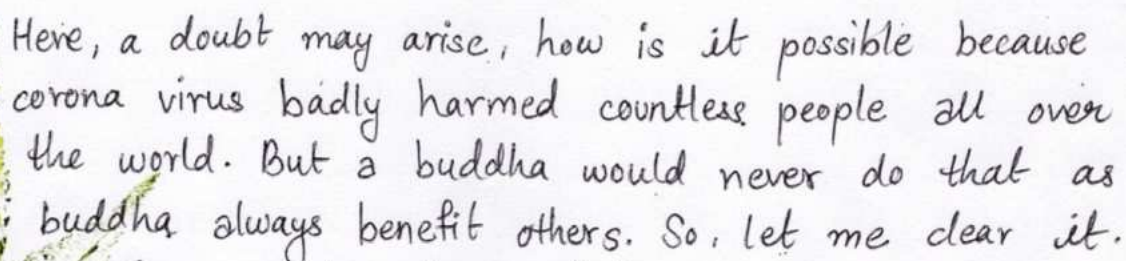 Here, a doubt may arise, how is it possible because
corona virus badly harmed countless people all over
the world. But a buddha would never do that as
buddha always benefit others. So, let me clear it.